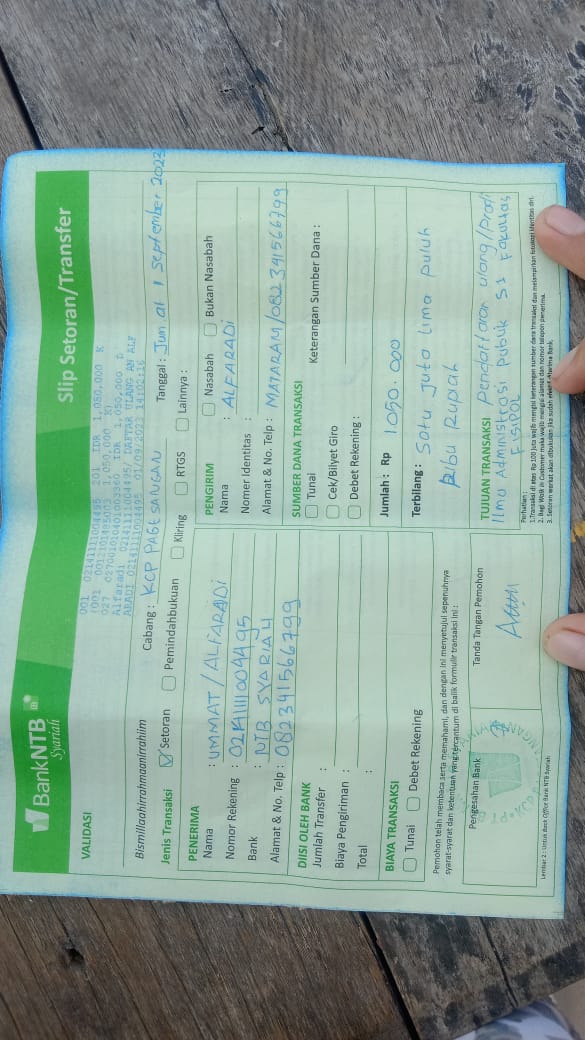 BankNTB
Syariah
Slip Setoran/Transfer
VALIDASI
001 02141111004495 201 IDR 1,050,000 K
027 0270010401003360 IDR 1,050,000 D
Alfaradi 02141111004495/ DAFTAR ULANG AN ALF
ARADI 02141111004495 01/09/2023 14:02:16
Bismillaahirrahmaanirrahiim
Cabang : KCP PAGESANGAN
Tanggal : Jum'at 1 September 2023
Jenis Transaksi
Setoran
Pemindahbukuan
Kliring
RTGS
Lainnya :
PENERIMA
Nama : UMMAT / ALFARADI
Nomor Rekening : 02141111004495
Bank : NTB SYARIAH
Alamat & No. Telp : 082341566799
PENGIRIM
Nasabah
Bukan Nasabah
Nama : ALFARADI
Nomor Identitas :
Alamat & No. Telp : MATARAM/082341566799
DIISI OLEH BANK
Jumlah Transfer :
Biaya Pengiriman :
Total :
SUMBER DANA TRANSAKSI
Tunai
Keterangan Sumber Dana :
Cek/Bilyet Giro
Debet Rekening :
BIAYA TRANSAKSI
Tunai
Debet Rekening
Jumlah : Rp 1050.000
Terbilang : Satu juta lima puluh
Ribu Rupiah
Pemohon telah membaca serta memahami, dan dengan ini menyetujui sepenuhnya
syarat-syarat dan ketentuan yang tercantum di balik formulir transaksi ini :
Pengesahan Bank
Tanda Tangan Pemohon
TUJUAN TRANSAKSI Pendaftaran ulang/Prodi
Ilmu Administrasi Publik S1 Fakultas
FISIPOL
Perhatian :
1.Transaksi di atas Rp 100 juta wajib mengisi keterangan sumber dana transaksi dan melampirkan fotokopi identitas diri.
2. Bagi Walk in Customer maka wajib mengisi alamat dan nomor telepon penerima.
3. Setoran warkat akan dibukukan jika sudah efektif diterima Bank.
Lembar 2 : Untuk Back Office Bank NTB Syariah